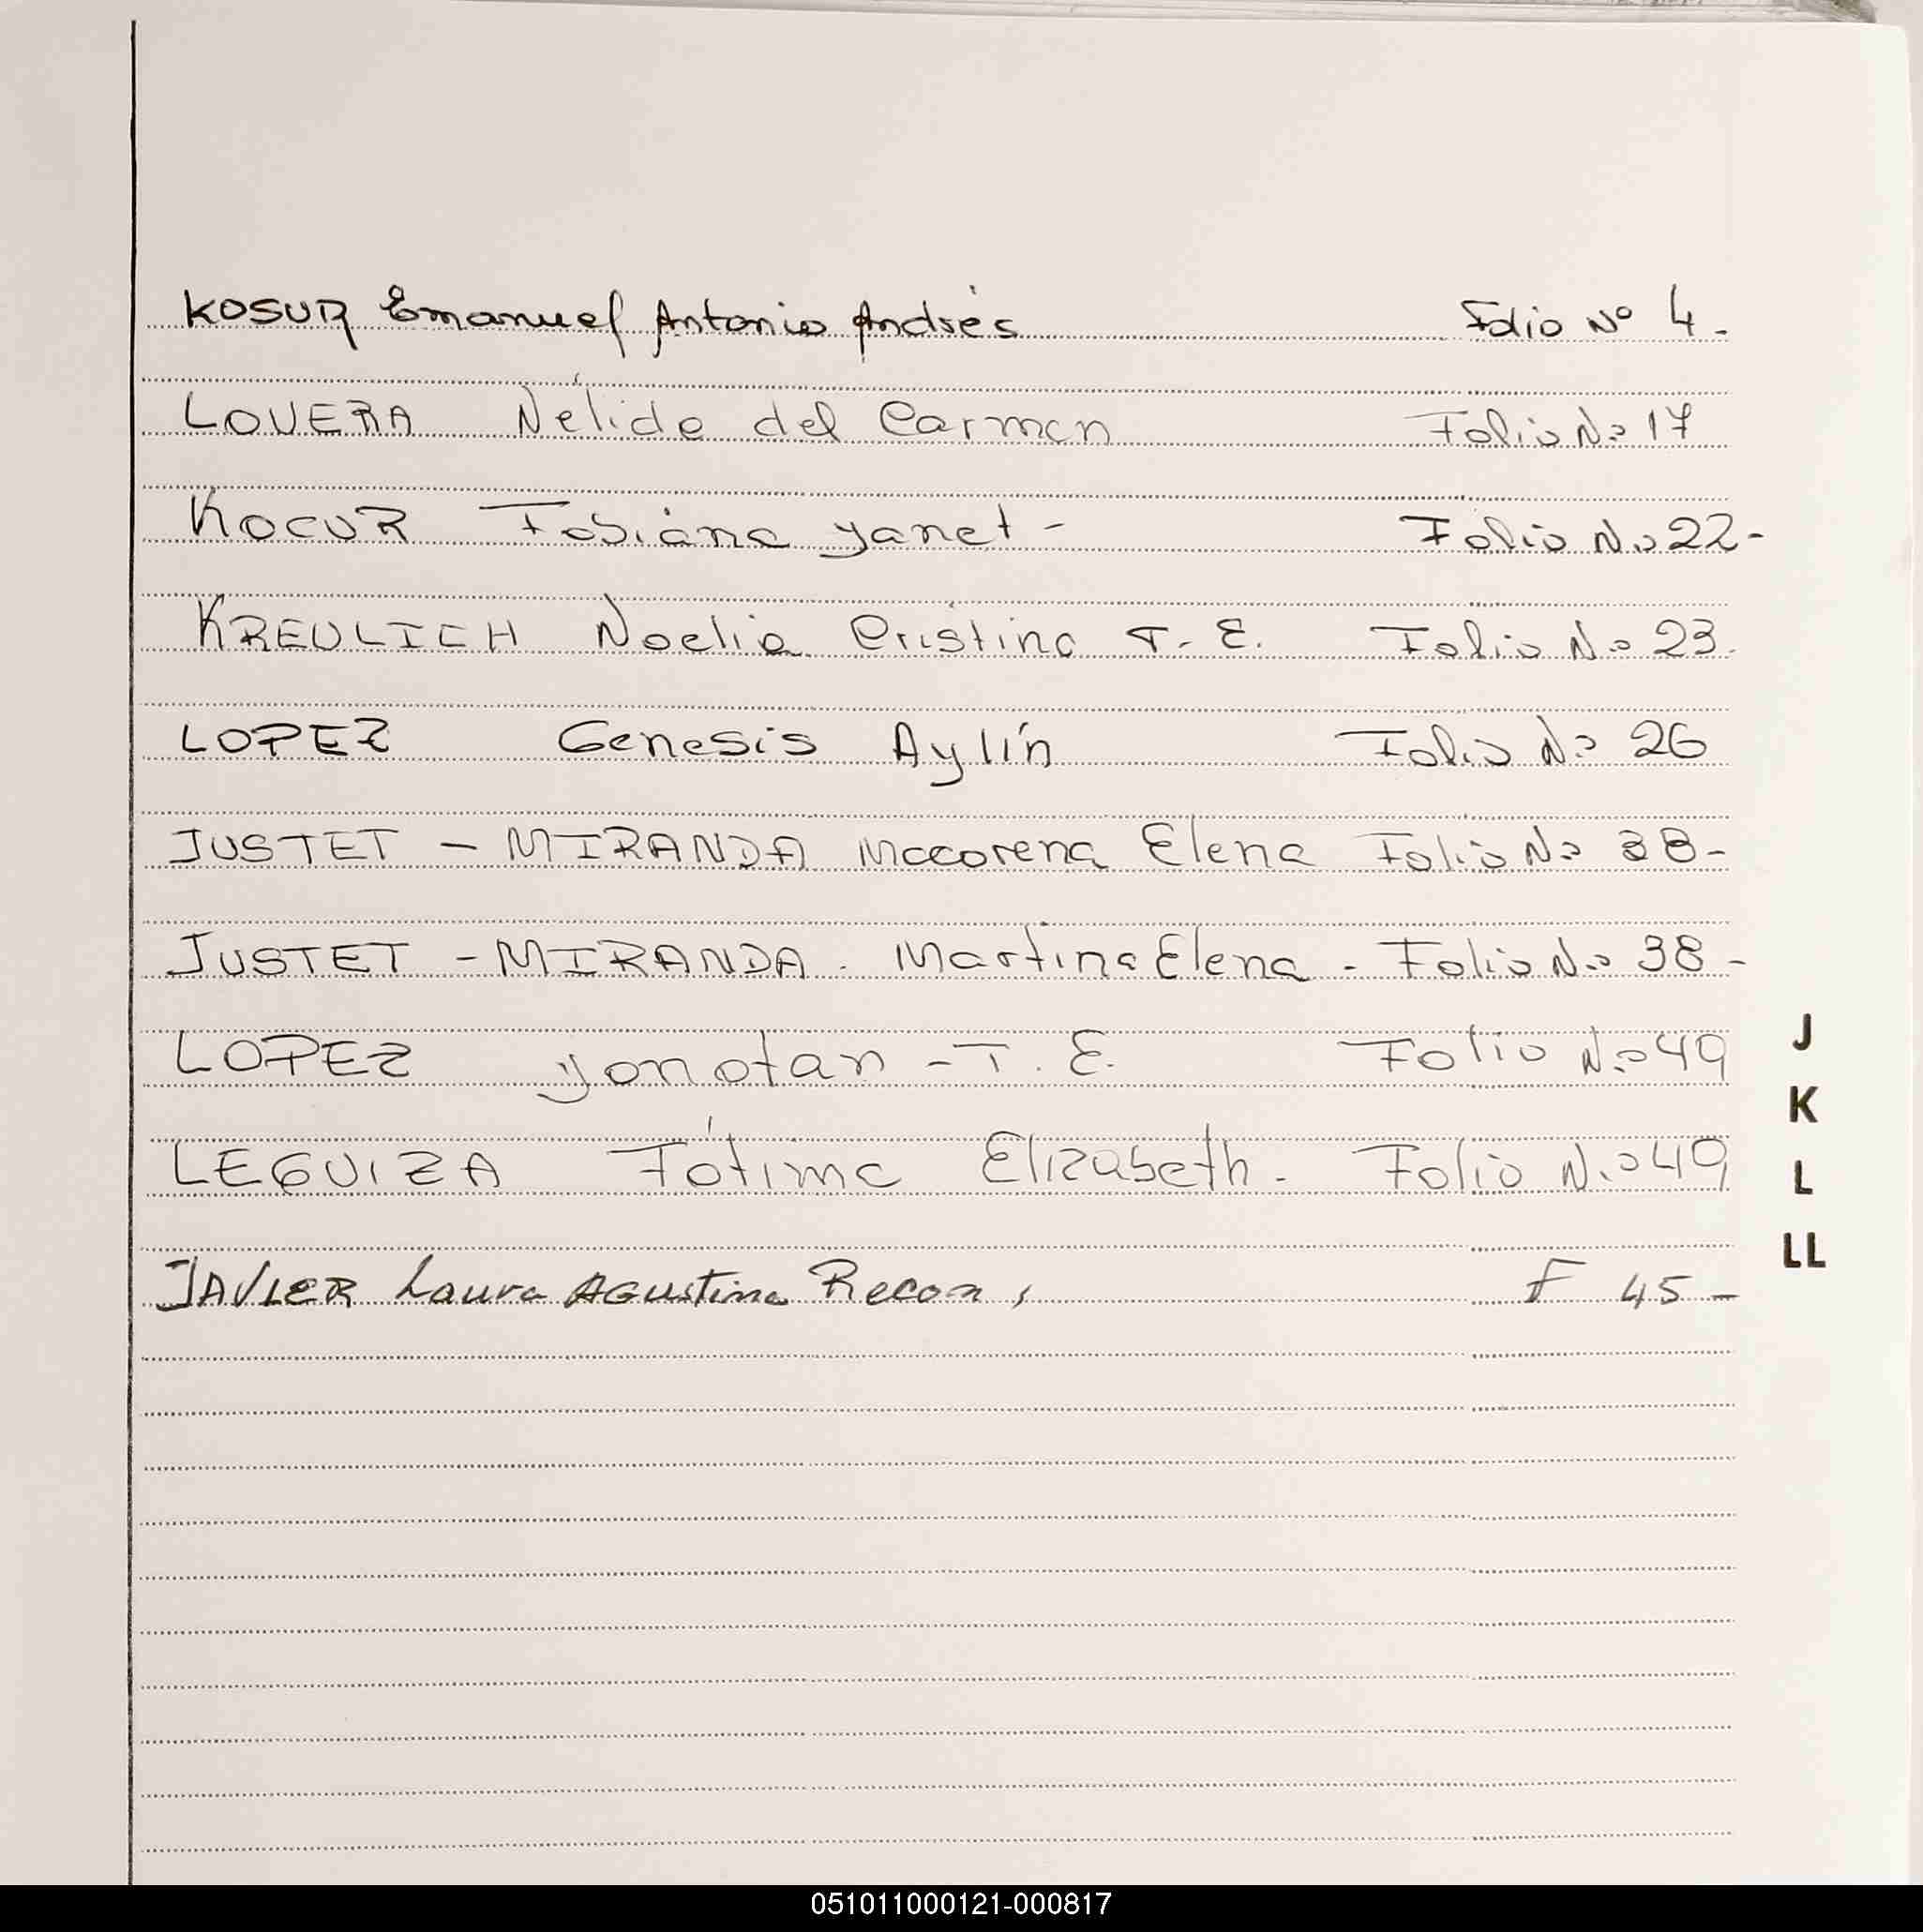 KOSUR Emanuel Antonio Andrés Folio Nº 4.
LOVERA Nélida del Carmen Folio Nº 17
KOCUR Fabiana yanet - Folio Nº 22-
KREULICH Noelia Cristina T. E. Folio Nº 23.
LOPEZ Genesis Aylín Folio Nº 26
JUSTET - MIRANDA Macorena Elena Folio Nº 38-
JUSTET - MIRANDA. Martina Elena. Folio Nº 38-
LOPEZ yonatan - T. E. Folio Nº 49
LEGUIZA Fátima Elizabeth. Folio Nº 49
JAVIER Laura AGustina Recon, F 45-
J
K
L
LL
051011000121-000817